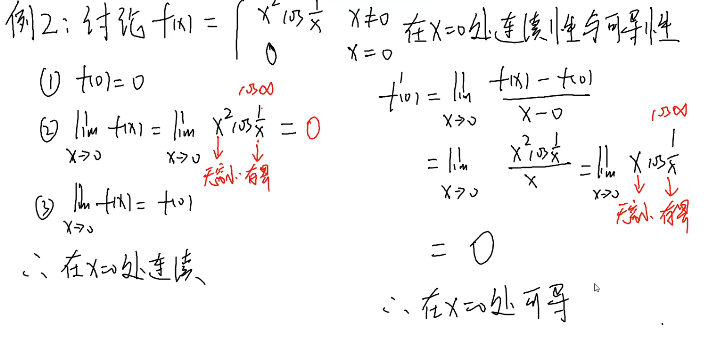 例2: 讨论 f(x) = { x² cos 1/x x≠0 在x=0处连续性与可导性
0 x=0
① f(0) = 0
cos∞
② lim x→0 f(x) = lim x→0 x² cos 1/x = 0
无穷小·有界
③ lim x→0 f(x) = f(0)
∴ 在x=0处连续
f'(0) = lim x→0 (f(x) - f(0))/(x-0)
cos∞
= lim x→0 (x² cos 1/x)/x = lim x→0 x cos 1/x
无穷小 有界
= 0
∴ 在x=0处可导